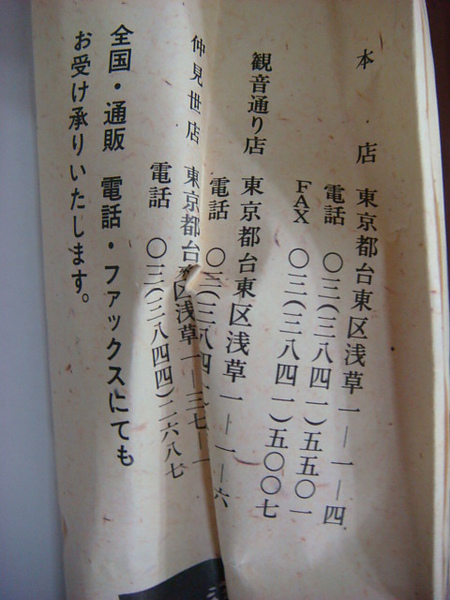 本店 東京都台東区浅草一ー一ー四
電話 〇三(三八四一)五五〇一
FAX 〇三(三八四一)五〇〇七
観音通り店 東京都台東区浅草一ー一ー六
電話 〇三(三八四
仲見世店 東京都台東区浅草一ー三七ー一
電話 〇三(三八四四)二六八七
全国・通販 電話・ファックスにても
お受け承りいたします。